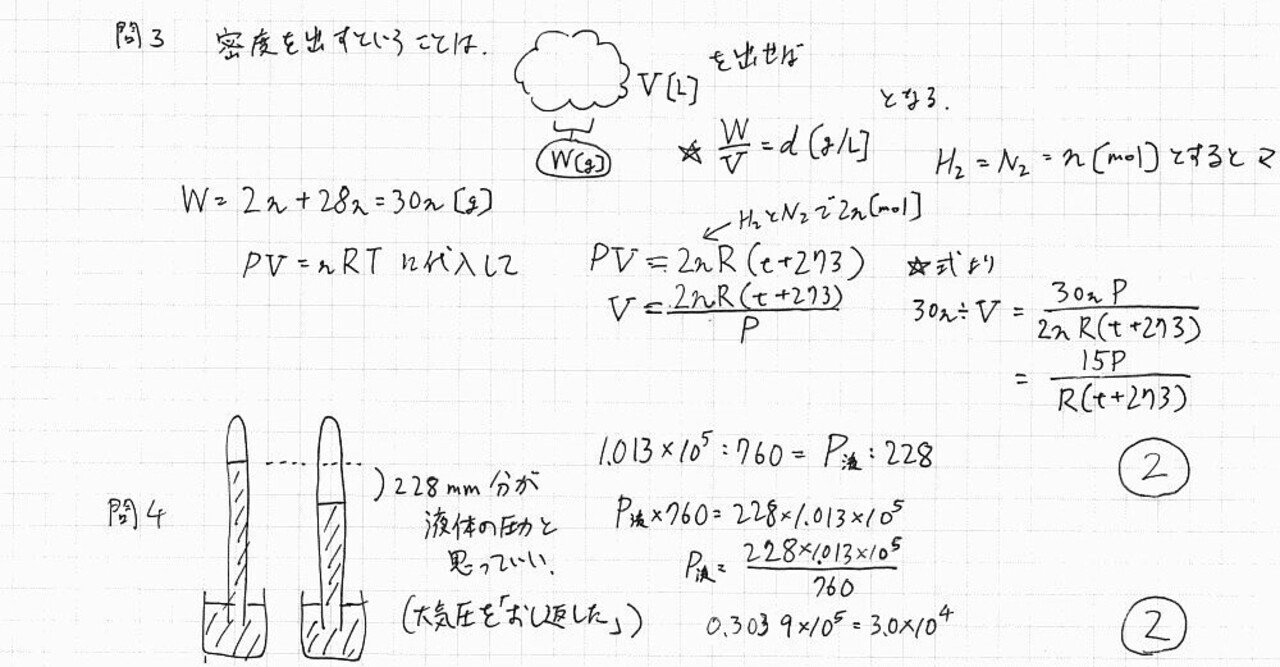 問3 密度を出すということは、 V[L] を出せば
W[g]
☆ W/V = d [g/L] となる.
H₂ = N₂ = n [mol] とすると
W = 2n + 28n = 30n [g]
H₂とN₂で2n[mol]
PV = nRT に代入して PV = 2nR(t+273)
V = 2nR(t+273)/P
☆式より
30n ÷ V = 30nP/2nR(t+273)
= 15P/R(t+273)
2
問4
)228mm分が
液体の圧力と
思っていい.
(大気圧を「おし返した」)
1.013×10⁵ : 760 = P液 : 228
P液×760 = 228×1.013×10⁵
P液 = 228×1.013×10⁵/760
0.3039×10⁵ = 3.0×10⁴
2